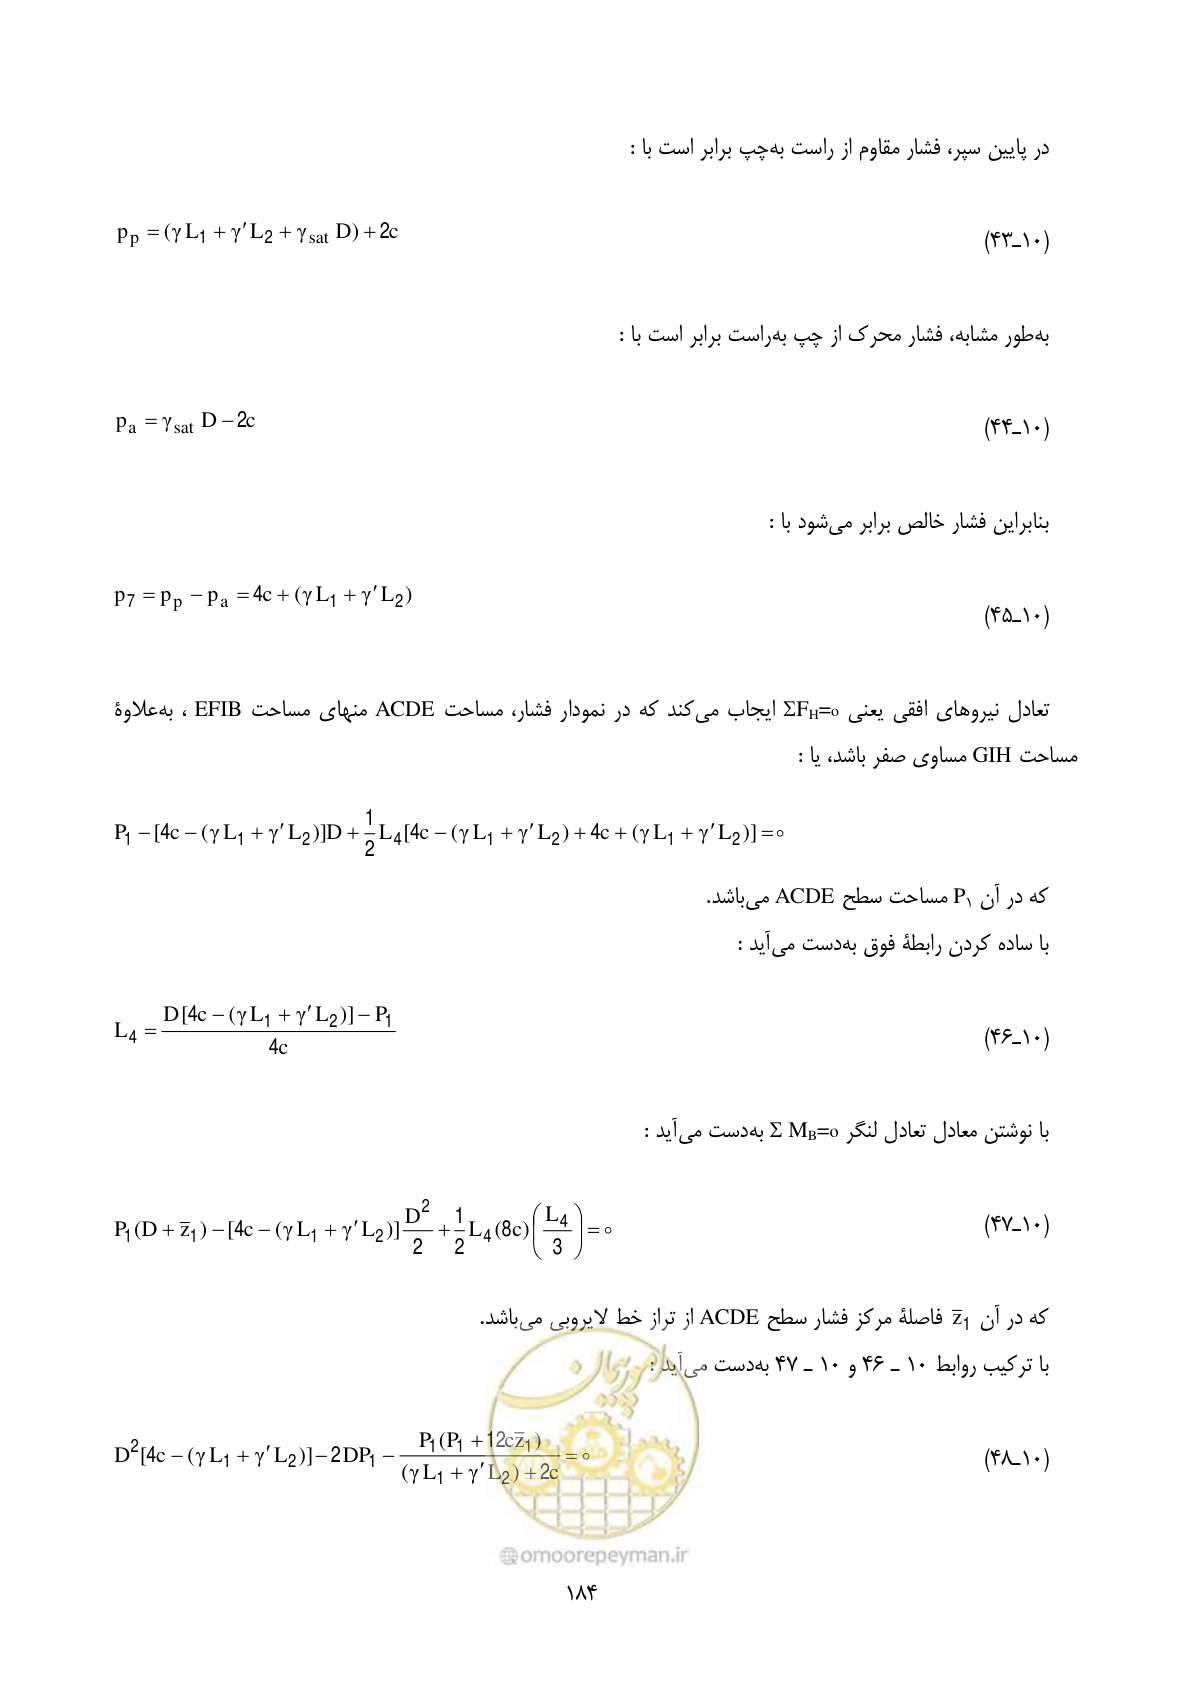 در پایین سپر، فشار مقاوم از راست به‌چپ برابر است با :
p_p = (γ L₁ + γ′ L₂ + γ_sat D) + 2c (۴۳ــ۱۰)
به‌طور مشابه، فشار محرک از چپ به‌راست برابر است با :
p_a = γ_sat D − 2c (۴۴ــ۱۰)
بنابراین فشار خالص برابر می‌شود با :
p₇ = p_p − p_a = 4c + (γ L₁ + γ′ L₂) (۴۵ــ۱۰)
تعادل نیروهای افقی یعنی ΣF_H=o ایجاب می‌کند که در نمودار فشار، مساحت ACDE منهای مساحت EFIB ، به‌علاوهٔ
مساحت GIH مساوی صفر باشد، یا :
P₁ − [4c − (γ L₁ + γ′ L₂)]D + 1/2 L₄[4c − (γ L₁ + γ′ L₂) + 4c + (γ L₁ + γ′ L₂)] = ۰
که در آن P۱ مساحت سطح ACDE می‌باشد.
با ساده کردن رابطهٔ فوق به‌دست می‌آید :
L₄ = (D[4c − (γ L₁ + γ′ L₂)] − P₁) / 4c (۴۶ــ۱۰)
با نوشتن معادل تعادل لنگر Σ M_B=o به‌دست می‌آید :
P₁(D + z̄₁) − [4c − (γ L₁ + γ′ L₂)] D²/2 + 1/2 L₄(8c)(L₄/3) = ۰ (۴۷ــ۱۰)
که در آن z̄₁ فاصلهٔ مرکز فشار سطح ACDE از تراز خط لایروبی می‌باشد.
با ترکیب روابط ۱۰ ــ ۴۶ و ۱۰ ــ ۴۷ به‌دست می‌آید :
D²[4c − (γ L₁ + γ′ L₂)] − 2DP₁ − P₁(P₁ + 12cz̄₁) / ((γ L₁ + γ′ L₂) + 2c) = ۰ (۴۸ــ۱۰)
امور پیمان
@omoorepeyman.ir
۱۸۴